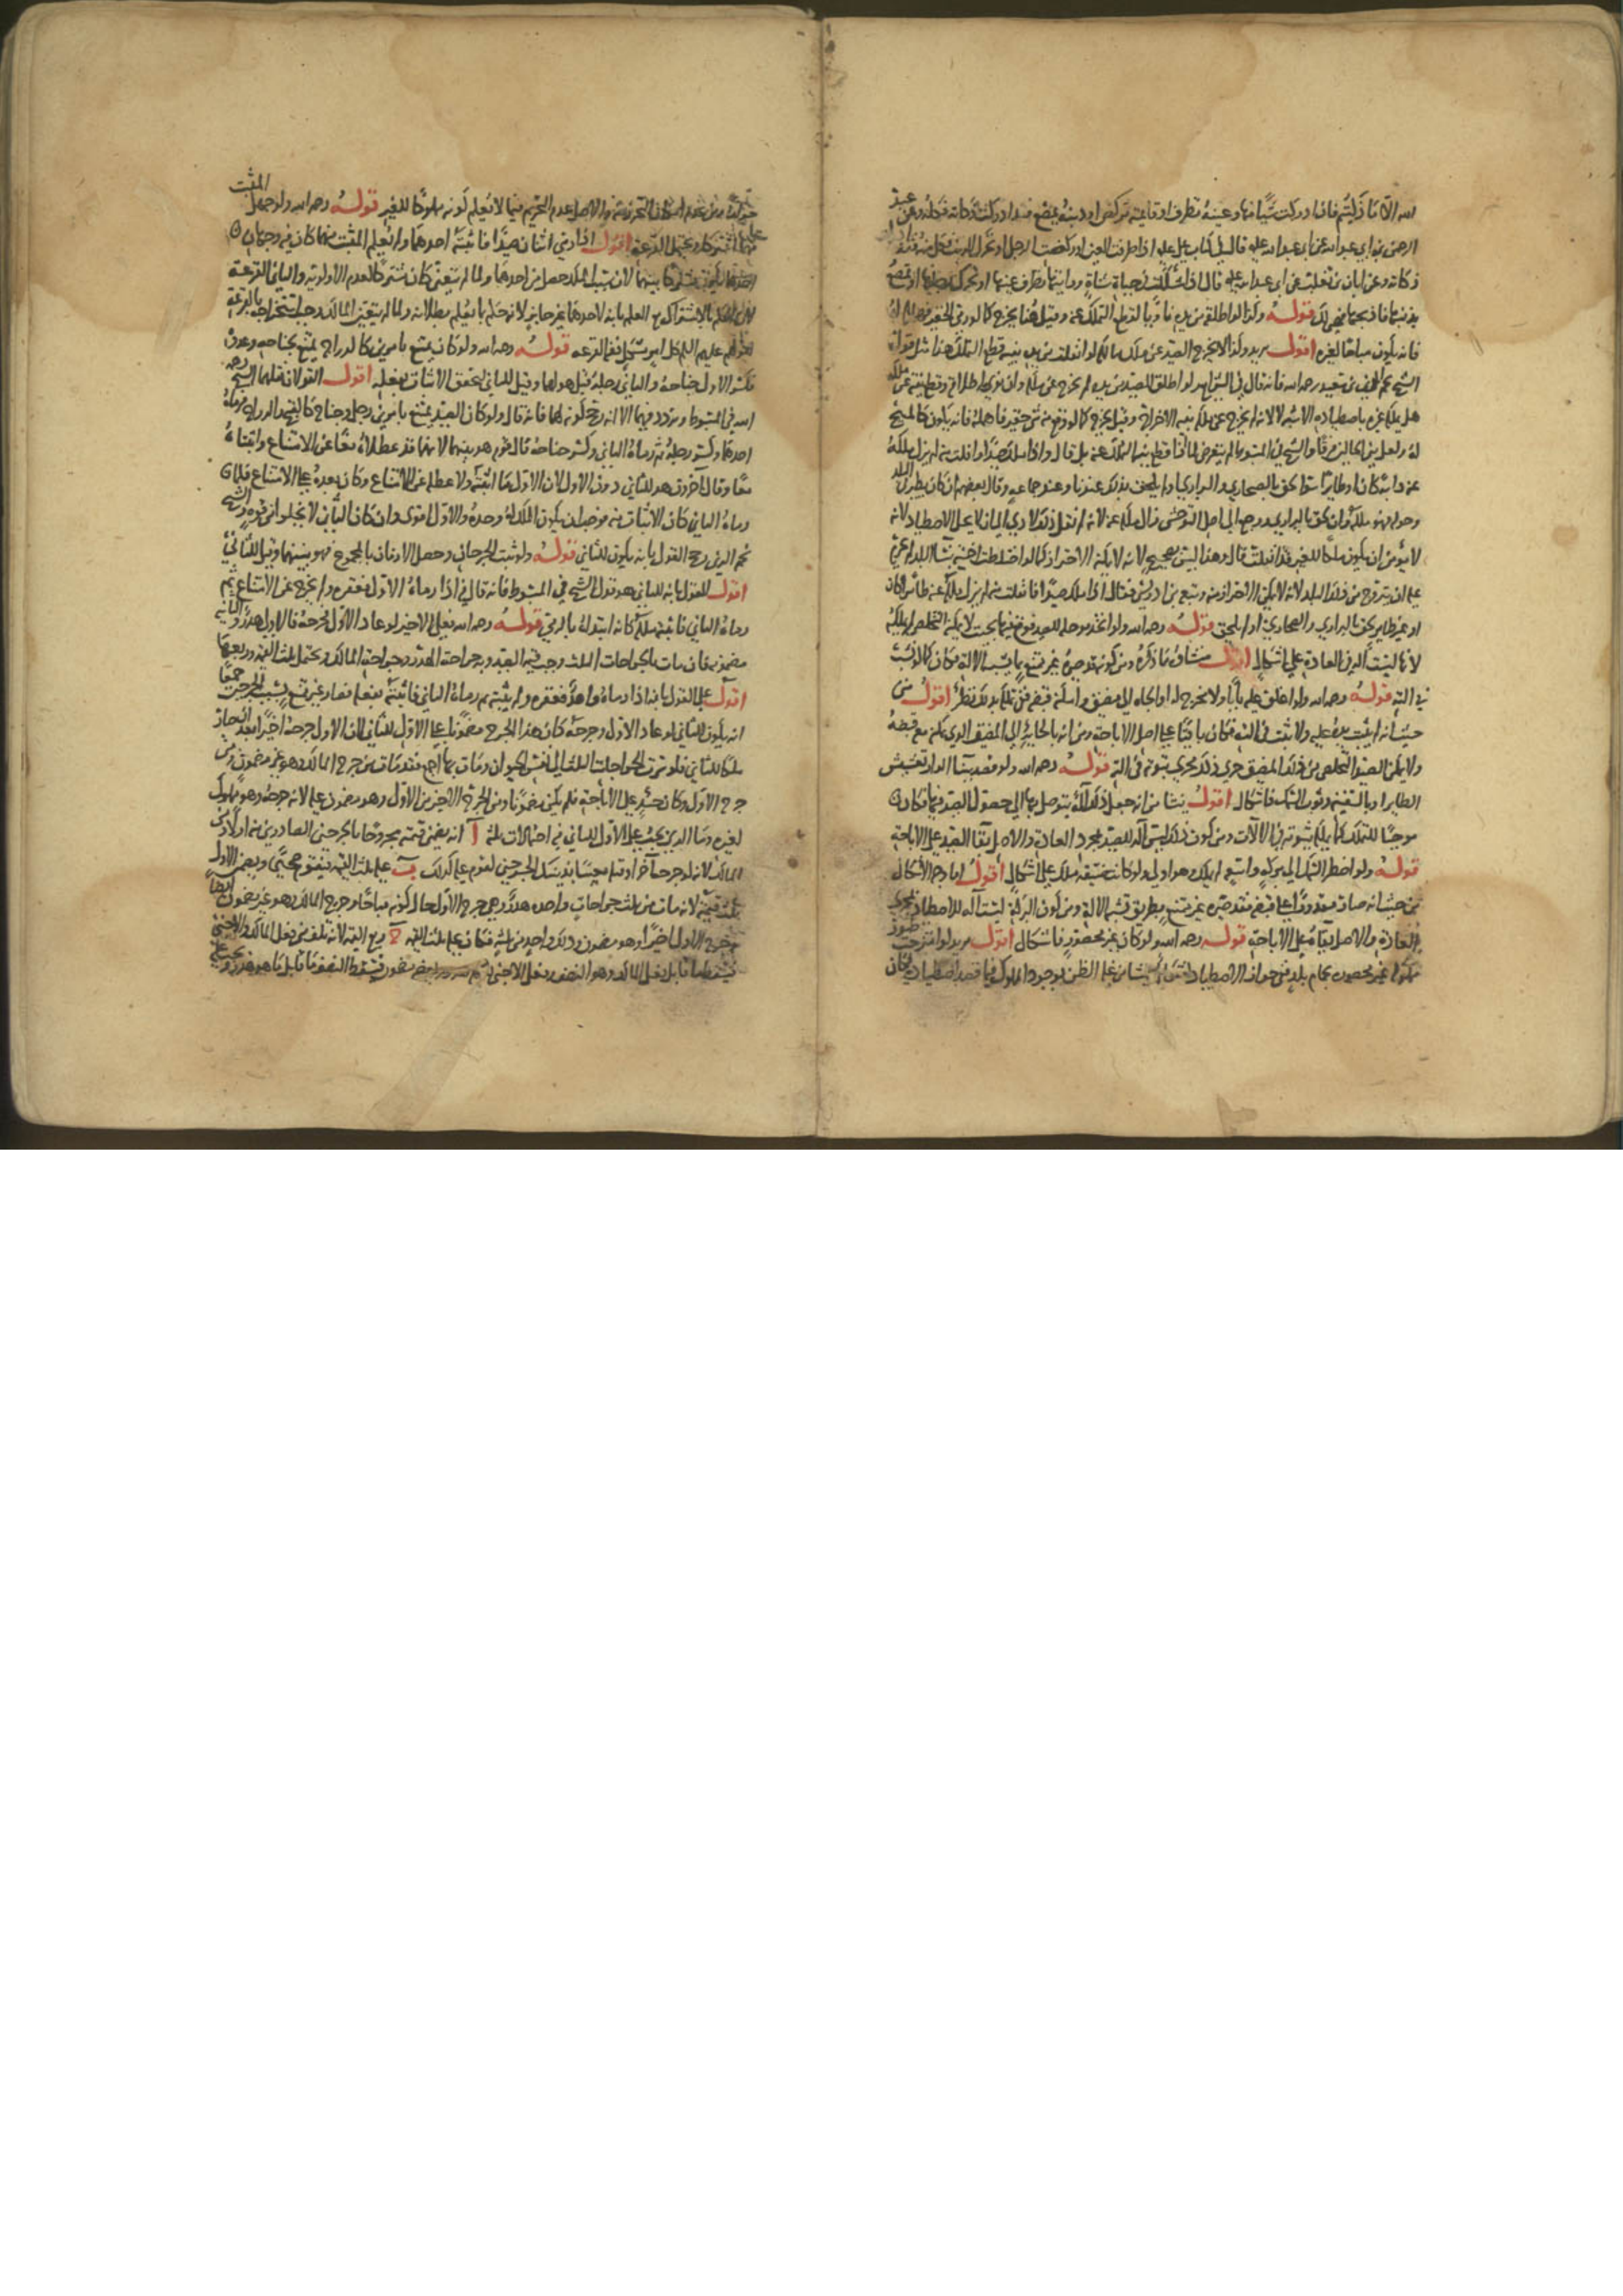 الله الا ما ذكيتم فاذا ادركت شيئا منها وعينه تطرف او قايمة تركض او ذنبه يمصع فقد ادركت ذكاته فكله وعن عبد
الرحمن بن ابي عبد الله عن ابي عبد الله عليه قال في كتاب علي عليه اذا طرفت العين او ركضت الرجل او تحرك الذنب فكل منه فقد
ذكاته وعن ابان بن تغلب عن ابي عبد الله عليه قال اذا شككت في حياة شاة ورايتها تطرف عينها او تحرك اذنيها او تمصع
بذنبها فاذبحها فانها لك قوله وكذا لو اطلقه من يده ناويا لقطع التملك عنه وقيل هنا يخرج كالو رمى الحقير
فانه يكون مباحا لغيره اقول يريد وكذا لا يخرج الصيد عن ملك مالكه لو انفلت من يده بنية قطع التملك هذا مثل قول
الشيخ رحمه الله فانه قال في لو اطلق الصيد من يده لم يخرج عن ملكه وان نوى اطلاقه وقطع نيته عن ملكه
هل يملكه غيره باصطياده الاشبه لا لانه لم يخرج عن ملكه بنية الاخراج وقيل يخرج كالو وقع منه شي حقير فاهمله فانه يكون كالمبيح
له ولعل بين الحالين فرقا والشيخ في المبسوط لم يتعرض لما اذا قطع نية التملك عنه بل قال واذا ملك صيدا فافلت منه لم يزل ملكه
عنه دابة كان او طايرا سوا لحق بالصحاري والبراري او لم يلحق بذلك عندنا وعند جماعة وقال بعضهم ان كان يطير في البلد
وحوله فهو ملكه وان لحق بالبراري ورجع الى اصل التوحش زال ملكه عنه لانه
لا يؤمن ان يكون ملكا للغير قال وهذا ليس بصحيح لانه لا يمكنه الاحتراز
عليه ان يتزوج من ذلك البلد لانه لا يمكن الاحتراز منه وتبع بن ادريس فقال اذا ملك صيدا فافلت منه لم يزل ملكه عنه طائرا كان
او غير طاير لحق بالبراري والصحاري او لم يلحق قوله رحمه الله ولو اتخذ موحلة للصيد فوقع فيها بحيث لا يمكنه التخلص لم يملكه
لانها ليست آلة في العادة على اشكال اقول منشاؤه ما ذكره ومن كونه قد صيره غير ممتنع بما يشبه الالة فكان كالو نشب
في الته قوله رحمه الله ولو اغلق عليه بابا ولا مخرج له او الجاه الى مضيق وامكنه قبضه ففي تملكه بذلك نظر اقول من
حيث انه اثبت يده عليه ولا يثبت في الته فكان باقيا على اصل الاباحة ومن انه بالجائه الى المضيق الذي يمكن معه قبضه
ولا يمكن الصيد التخلص من ذلك المضيق جرى ذلك مجرى ثبوته في الته قوله رحمه الله ولو قصد ببنا الدار تعشيش
الطاير او بالسفينة وثوب السمك فاشكال اقول ينشا من انه جعل ذلك آلة يتوصل بها الى حصول الصيد فيها فكان
موجبا للتملك كما يملكه بثبوته في الآلات ومن كون ذلك ليس آلة للصيد بمجرى العادة والاصل بقا الصيد على الاباحة
قوله ولو اضطر السمك الى بركة واسعة لم يملكه وهو اولى ولو كانت ضيقة ملك على اشكال اقول اما وجه الاشكال
من حيث انه صار مقدورا على قبضه فقد صيره غير ممتنع بطريق تشبه الالة ومن كون البركة ليست آلة للاصطياد بمجرى
العادة والاصل بقاؤه على الاباحة قوله رحمه الله ولو كان غير محصور فاشكال اقول يريد لو امتزجت طيور
مملوكة غير محصورة بحمام بلد ففي جواز الاصطياد اشكال ينشا من غلبة الظن بوجود المملوك فيما قصد اصطياده فكان
ومن عدم اسباب التحريم والاصل عدم التحريم فيما لا يعلم كونه مملوكا للغير قوله رحمه الله ولو جهل المثبت
منهما اشتركا ويحتمل القرعة اقول اذا رمى اثنان صيدا فاثبته احدهما ولم يعلم المثبت منهما كان فيه وجهان
احدهما يكون مشتركا بينهما لان سبب الملك حصل من احدهما ولما لم يتعين كان مشتركا لعدم الاولوية والثاني القرعة
لان الحكم بالاشتراك مع العلم بانه لاحدهما غير جايز لانه حكم بما يعلم بطلانه ولما لم يتعين المالك وجب استخراجه بالقرعة
لقولهم عليهم السلم كل امر مشكل ففيه القرعة قوله رحمه الله ولو كان يمتنع بامرين كالدراج يمتنع بجناحه وعدوه
فكسر الاول جناحه والثاني رجله قيل هو لهما وقيل للثاني لتحقق الاثبات بفعله اقول القولان نقلهما الشيخ رحمه
الله في المبسوط وتردد فيهما الا انه رجح كونه لهما فانه قال ولو كان الصيد يمتنع بامرين رجل وجناح كالقبج والدراج فرماه
احدهما فكسر رجله ثم رماه الثاني فكسر جناحه قال قوم هو بينهما لانهما قد عطلاه معا عن الامتناع واثبتاه
معا وقال آخرون هو للثاني دون الاول لان الاول ما اثبته ولا عطله عن الامتناع وكان بعده على الامتناع فلما
رماه الثاني كان الاثبات منه فوجب ان يكون الملك له وحده والاول اقوى وان كان الثاني لا يخلو من قوة والشيخ
نجم الدين رجح القول بانه يكون للثاني قوله ولو ثبت الجرحان وحصل الاثبات بالمجموع فهو بينهما وقيل للثاني
اقول القول بانه للثاني هو قول الشيخ في المبسوط فانه قال في اذا رماه الاول فعقره ولم يخرج عن الامتناع ثم
رماه الثاني فاثبته ملكه كانه ابتداه بالرمي قوله رحمه الله فعلى الاخير لو عاد الاول فجرحه فالاولى هدر والثانية
مضمونة فان مات بالجراحات الثلث وجب قيمة الصيد وبه جراحة الهدر وجراحة المالك ويحتمل ثلث القيمة وربعها
اقول على القول بانه اذا رماه واحد فعقره ولم يثبته ثم رماه الثاني فاثبته بفعله فصار غير ممتنع بسبب الجرحين جميعا
انه يكون للثاني لو عاد الاول وجرحه كان هذا الجرح مضمونا على الاول للثاني لان الاول جرحه اخيرا بعد ان صار
ملكا للثاني فلو سرت الجراحات الثلث الى نفس الحيوان ومات بها اجمع فقد مات من جرح المالك وهو غير مضمون ومن
جرح الاول وكان حينئذ على الاباحة فلم يكن مضمونا ومن الجرح الاخير من الاول وهو مضمون عليه لانه جرحه وهو مملوك
لغيره وما الذي يجب على الاول للثاني فيه احتمالات ثلثة آ انه يضمن قيمته مجروحا بالجرحين الصادرين منه اولا ومن
المالك لانه لو جرحه آخر او قتله معيبا بمثل الجرحين لقوم عليه كذلك ب عليه ثلث القيمة فيقوم صحيحا ويضمن الاول
ثلث قيمته لانه مات من ثلث جراحات واحده هدر وهي جرح الاول حال كونه مباحا وجرح المالك وهو غير مضمون ايضا
وجرح الاول اخيرا وهو مضمون وذلك واحد من ثلثة فكان عليه ثلث القيمة ج ربع القيمة لانه تلف من فعل المالك والاجنبي
فيسقط ما قابل فعل المالك وهو النصف وفعل الاجنبي بعضه مضمون فيسقط النصف ما قابل ما هو هدر ويجب عليه